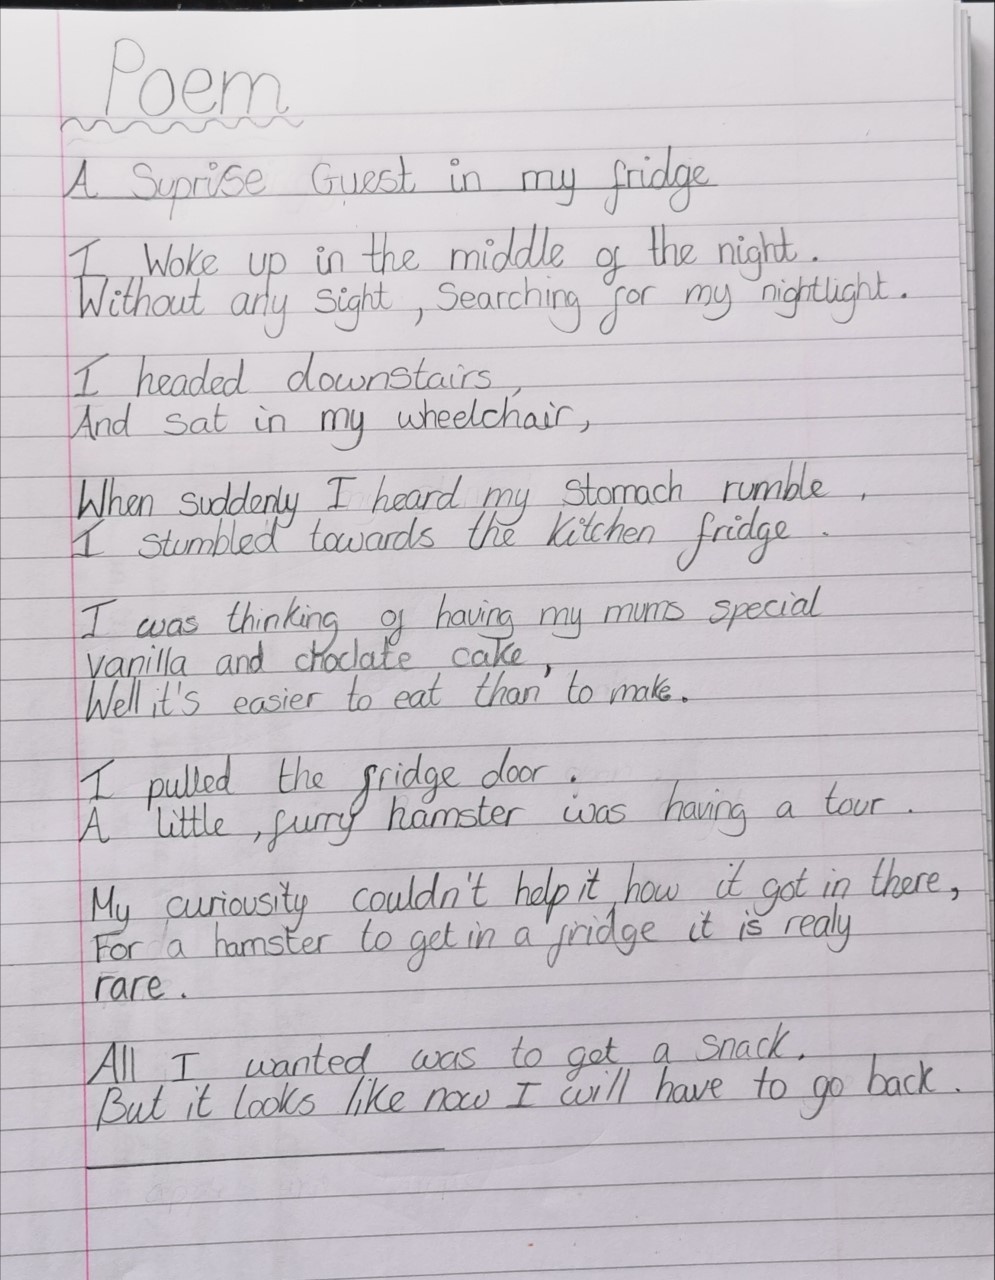 Poem
A Suprise Guest in my fridge
I Woke up in the middle of the night.
Without any sight, Searching for my nightlight.
I headed downstairs,
And sat in my wheelchair,
When suddenly I heard my stomach rumble,
I stumbled towards the kitchen fridge.
I was thinking of having my mums special
vanilla and choclate cake,
Well it's easier to eat than to make.
I pulled the fridge door.
A little, furry hamster was having a tour.
My curiousity couldn't help it, how it got in there,
For a hamster to get in a fridge it is realy
rare.
All I wanted was to get a snack.
But it looks like now I will have to go back.